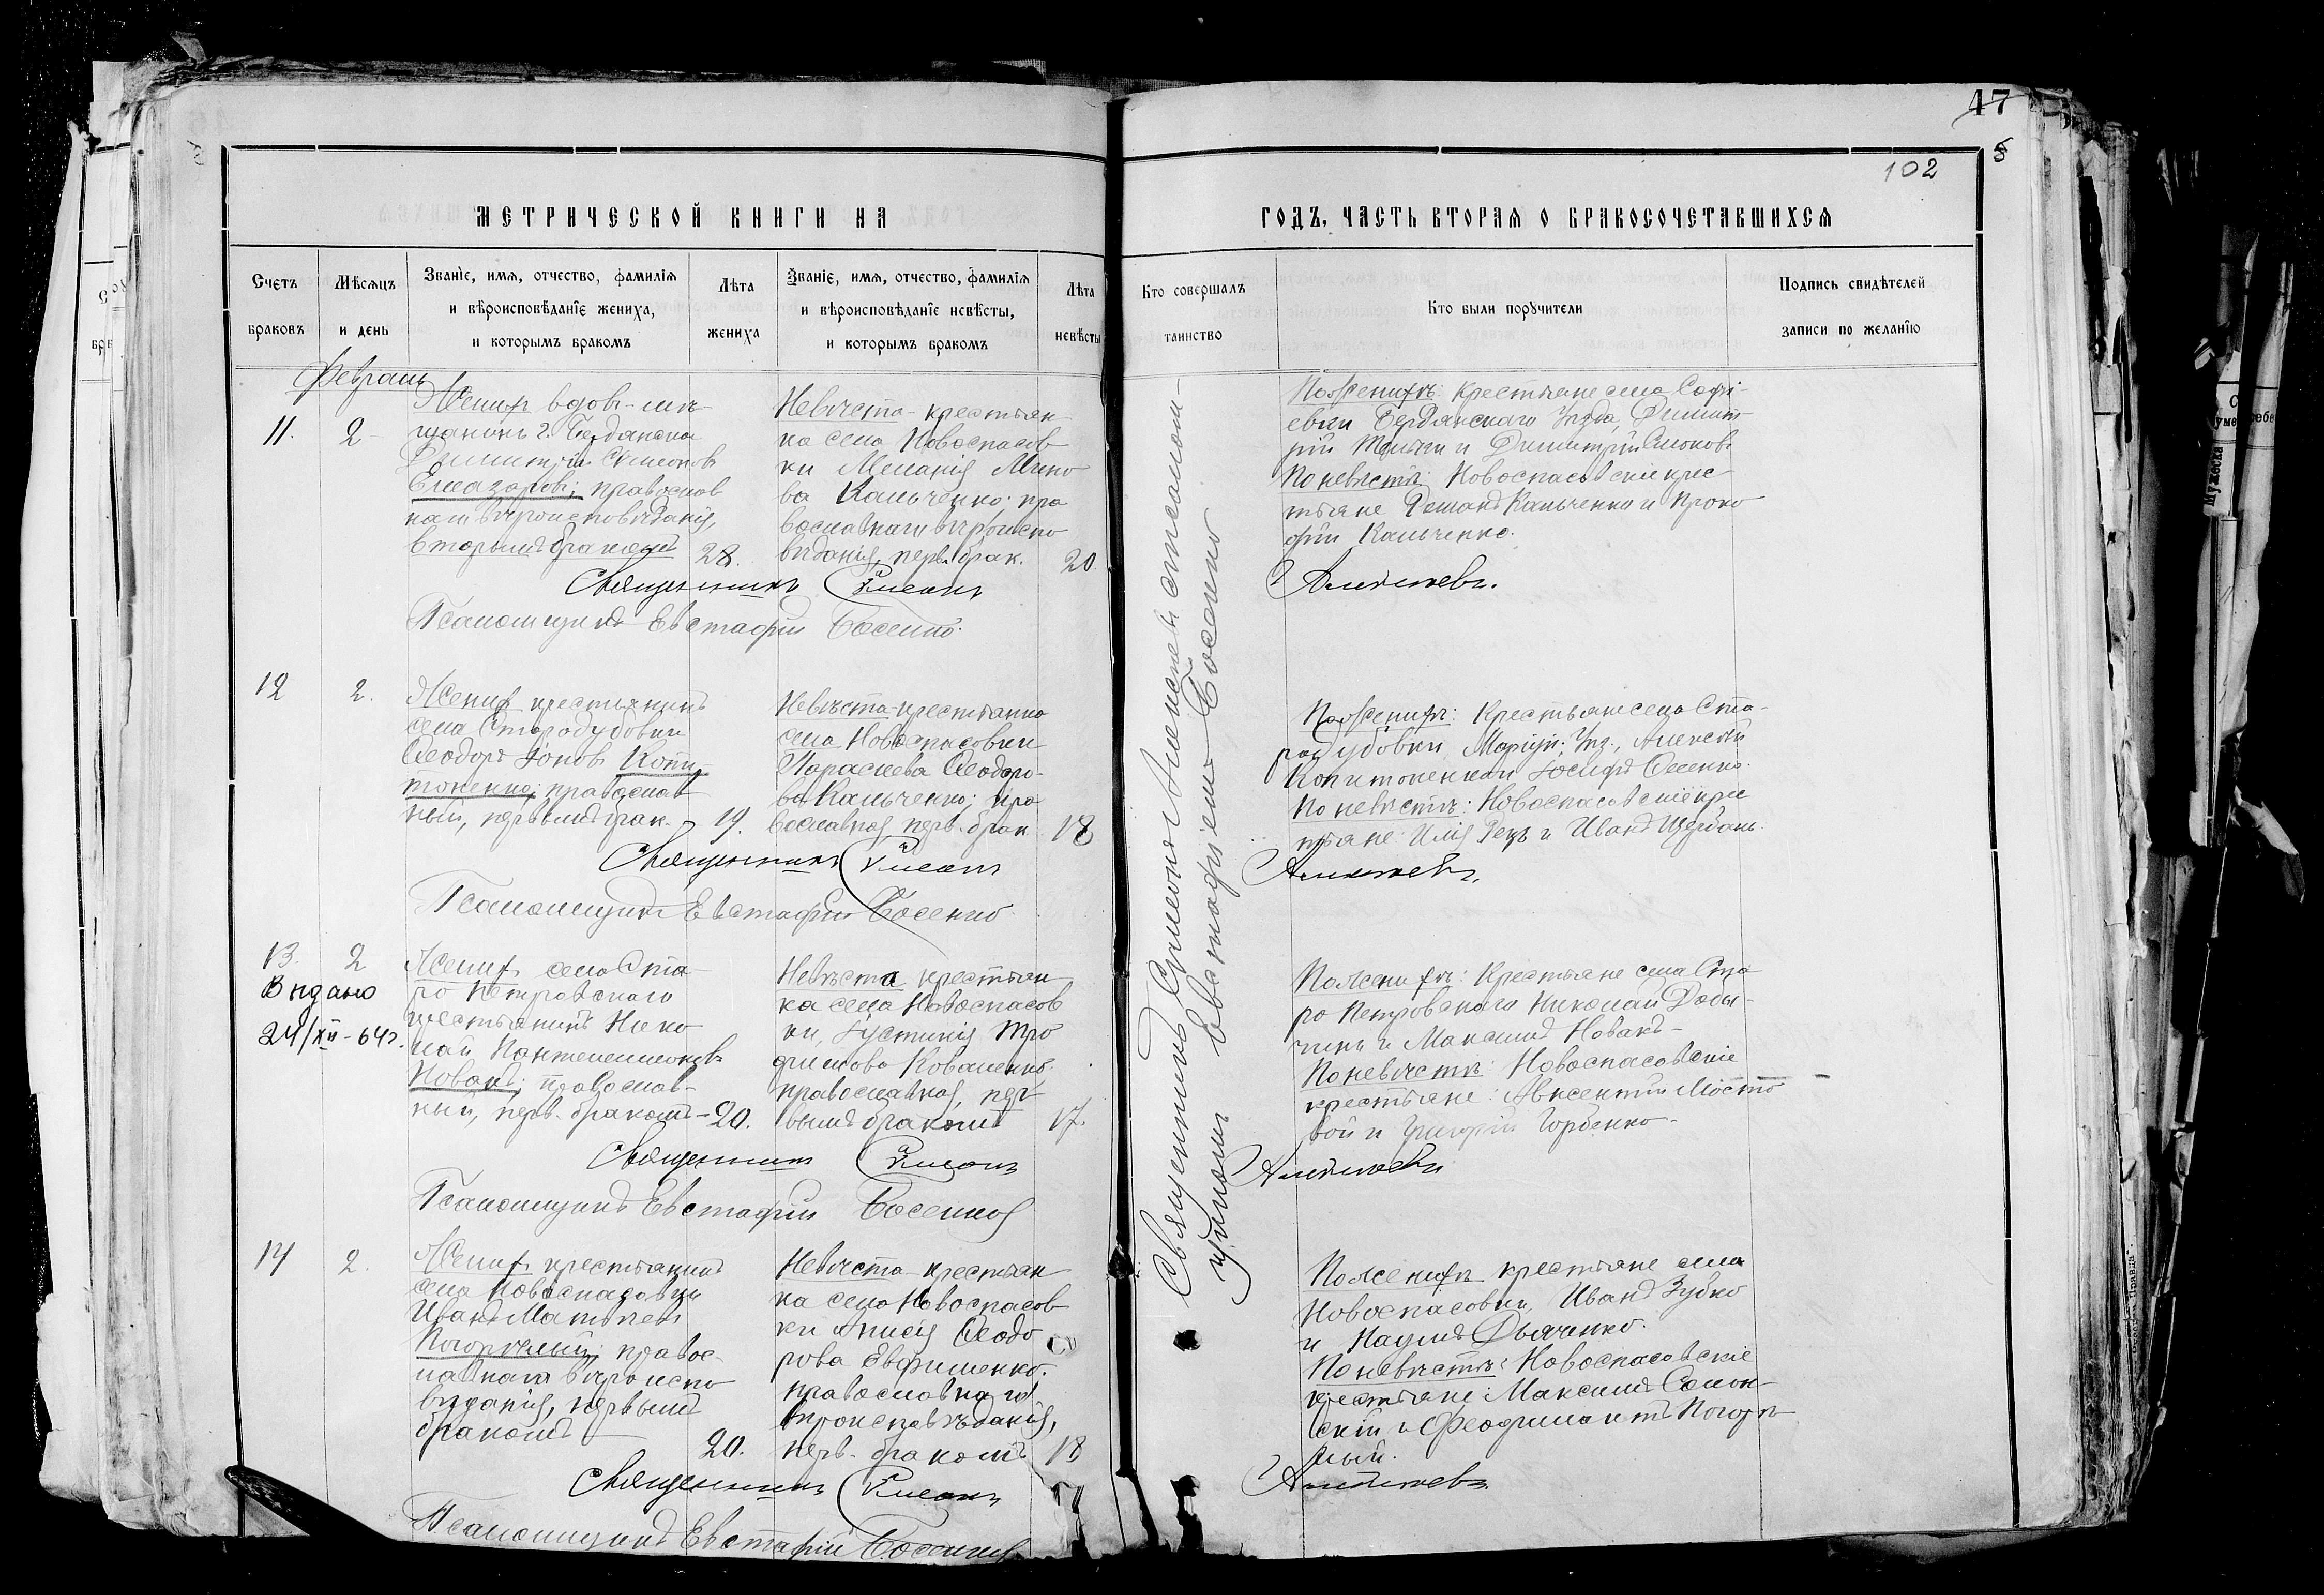 47
5
102
МЕТРИЧЕСКОЙ КНИГИ НА
ГОДЪ, ЧАСТЬ ВТОРАЯ О БРАКОСОЧЕТАВШИХСЯ
Счетъ
браковъ
Мѣсяцъ
и день
Званіе, имя, отчество, фамилія
и вѣроисповѣданіе жениха,
и которымъ бракомъ
Лѣта
жениха
Званіе, имя, отчество, фамилія
и вѣроисповѣданіе невѣсты,
и которымъ бракомъ
Лѣта
невѣсты
Кто совершалъ
таинство
Кто были поручители
Подпись свидѣтелей
записи по желанію
Февраль
11.
2
Женихъ вдовъ- мѣ-
щанинъ г. Бердянска
Димитрій Симеоновъ
Елеазаровъ; православ
наго вѣроисповѣданія,
вторымъ бракомъ
28.
Невѣста- крестьян
ка села Новоспасов
ки Меланія
Кальченко; пра
вославнаго вѣроиспо
вѣданія, перв. брак.
20.
Священникъ
Псаломщикъ Евстафій Босенко.
По женихѣ: Крестьяне села Софі-
евки Бердянскаго Уѣзда, Димит
рій и Димитрій
По невѣстѣ: Новоспасовскіе крес
тьяне Романъ Кальченко и Проко
фій Кальченко.
12
2.
Женихъ крестьянинъ
села Стародубовки
Ѳеодоръ Іоновъ Копи
тоненко; православ
ный, первымъ брак.
19.
Невѣста-крестьянка
села Новоспасовки
Параскева Ѳеодоро-
ва Кальченко; пра
вославная, перв. брак
18
Священникъ
Псаломщикъ Евстафій Босенко.
По женихѣ: Крестьяне села Ста-
родубовки Маріуп. Уѣз., Алексѣй
Копитоненко и Іосифъ
По невѣстѣ: Новоспасовскіе крес
тьяне: Илія и Иванъ Щербань.
13.
2
Выдано
24/XII-64г.
Женихъ села Ста-
ро Петровскаго
крестьянинъ Нико
лай Пантелеимоновъ
Новакъ; православ-
ный, перв. бракомъ-
20.
Невѣста крестьян
ка села Новоспасов
ки, Іустинія Тро
фимова Коваленко.
православная, пер
вымъ бракомъ
17.
Священникъ
Псаломщикъ Евстафій Босенко
По женихѣ: Крестьяне села Ста
ро Петровскаго Николай
и Максимъ Новакъ-
По невѣстѣ: Новоспасовскіе
крестьяне: Авксентій Мосто
вой и Григорій Горбенко-
14
2.
Женихъ крестьянинъ
села Новоспасовки
Иванъ Матѳеевъ
Погорѣлый; правос-
лавнаго вѣроиспо
вѣданія, первымъ
бракомъ
20.
Невѣста крестьян
ка села Новоспасов
ки Анисія Ѳеодо
рова Евфименко.
православнаго
вѣроисповѣданія,
перв. бракомъ
18
Священникъ
Псаломщикъ Евстафій Босенко
По женихѣ крестьяне села
Новоспасовки, Иванъ Зубко
и Наумъ Дьяченко.
По невѣстѣ: Новоспасовскіе
крестьяне: Максимъ
и Феофилактъ Погорѣ
лый.
Священникъ Симеонъ съ псалом-
щикомъ Евстафіемъ Босенко